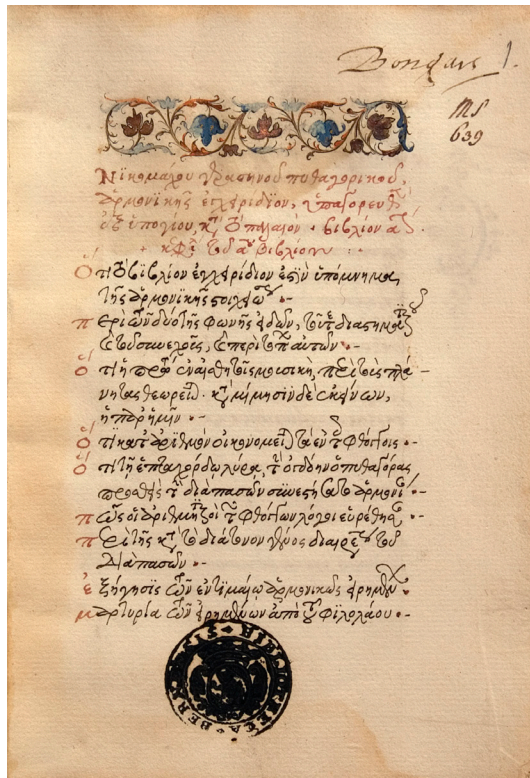 Bongars 1.
MS
639
Νικομάχου γερασηνοῦ πυθαγορικοῦ,
ἁρμονικῆς ἐγχειρίδιον, ὑπαγορευθὲν
ἐξ ὑπογύου, κατὰ τὸ παλαιόν. βιβλίον αον.
κεφάλαια τοῦ αου βιβλίου
Ὅτι τὸ βιβλίον ἐγχειρίδιον ἐστὶν ὑπόμνημα,
τῆς ἁρμονικῆς στοιχειώσεως
περὶ τῶν δύο τῆς φωνῆς εἰδῶν, τοῦ τε διαστηματικοῦ
καὶ τοῦ συνεχοῦς, καὶ περὶ τόπων αὐτῶν
ὅτι ἡ πρώτη ἐν αἰσθητοῖς μουσικὴ, περὶ τοὺς πλά-
νητας θεωρεῖται. κατὰ μίμησιν δὲ ἐκείνων,
ἡ παρ' ἡμῖν
ὅτι κατ' ἀριθμὸν οἰκονομεῖται τὰ ἐν τοῖς φθόγγοις
ὅτι τῇ ἑπταχόρδῳ λύρᾳ, τὴν ὀγδόην ὁ πυθαγόρας
προσθεὶς τὴν διὰ πασῶν συνεστήσατο ἁρμονίαν
πῶς οἱ ἀριθμητικοὶ τῶν φθόγγων λόγοι εὑρέθησαν
περὶ τῆς κατὰ τὸ διάτονον γένος διαιρέσεως τοῦ
διὰ πασῶν
ἐξήγησις τῶν ἐν τιμαίῳ ἁρμονικῶς εἰρημένων
μαρτυρία τῶν εἰρημένων ἀπὸ τοῦ φιλολάου
BIBLIOTHECA BERNENSIS